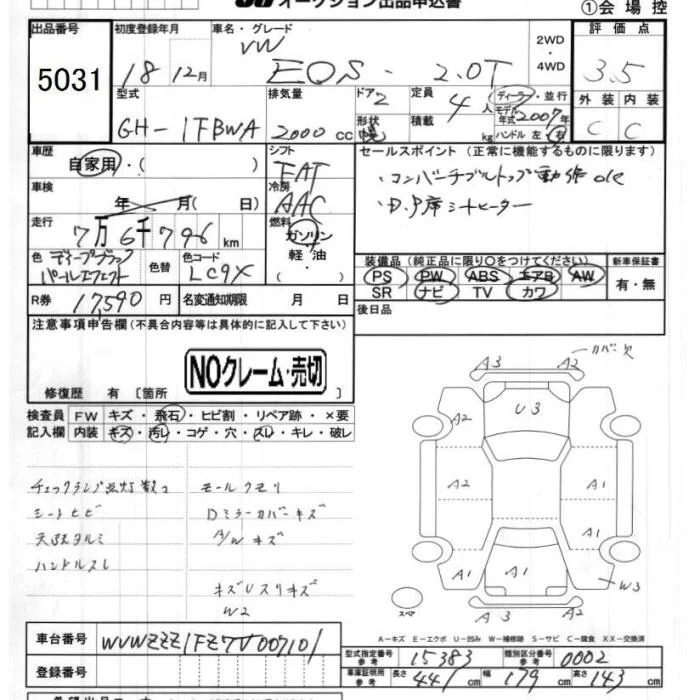 オークション出品申込書
①会場控
出品番号 初度登録年月 車名・グレード 評価点
5031 18 12月 VW EOS 2.0T 2WD・4WD 3.5
型式 排気量 ドア 定員 ディーラー・並行 外装 内装
GH-1FBWA 2000 CC 2 4人 モデル年式 2007年 C C
形状 幌 積載 kg ハンドル 左・右
車歴 シフト セールスポイント (正常に機能するものに限ります)
自家用・( ) FAT ・コンバーチブルトップ動作OK
車検 冷房 ・D.P席シートヒーター
年 月( 日) AAC
走行 燃料
7万6千796km ガソリン・軽油・( )
色 色替 色コード 装備品(純正品に限り○をつけてください) 新車保証書
ディープブラックパールエフェクト LC9X PS PW ABS エアB AW 有・無
SR ナビ TV カワ
R券 17,590円 名変通知期限 月 日 後日品
注意事項申告欄(不具合内容等は具体的に記入して下さい)
NOクレーム・売切
修復歴 有 [箇所
A3 A2 カバー欠
検査員 FW キズ・飛石・ヒビ割・リペア跡・×要
記入欄 内装 キズ・汚レ・コゲ・穴・スレ・キレ・破レ
U3
A2 A2
A2 A1
A1
A1 A1 W3
スペア A3 A2
チェックランプ点灯数コ モールクモリ
シートヒビ Dミラーカバーキズ
天張タルミ A/Wキズ
ハンドルスレ
キズUスリキズ
W2
A-キズ E-エクボ U-凹み W-補修跡 S-サビ C-腐食 XX-交換済
車台番号 WVWZZZ1FZ7V007101
型式指定番号 参考 15383 類別区分番号 参考 0002
登録番号 車庫証明用 参考 長さ 441cm 幅 179cm 高さ 143cm